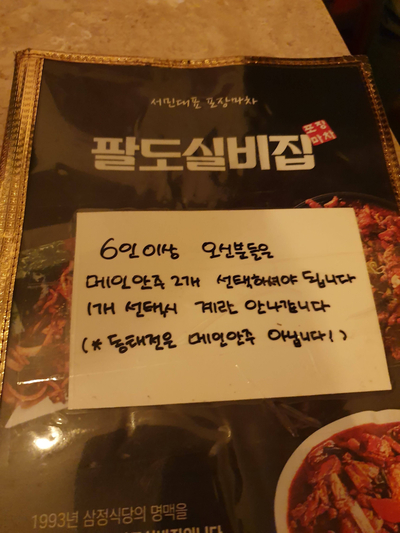 서민대표 포장마차
팔도실비집
포장
마차
6인이상 오신분들은
메인안주 2개 선택하셔야 됩니다
1개 선택시 계란 안나갑니다
(* 동태전은 메인안주 아닙니다!)
1993년 삼정식당의 명맥을